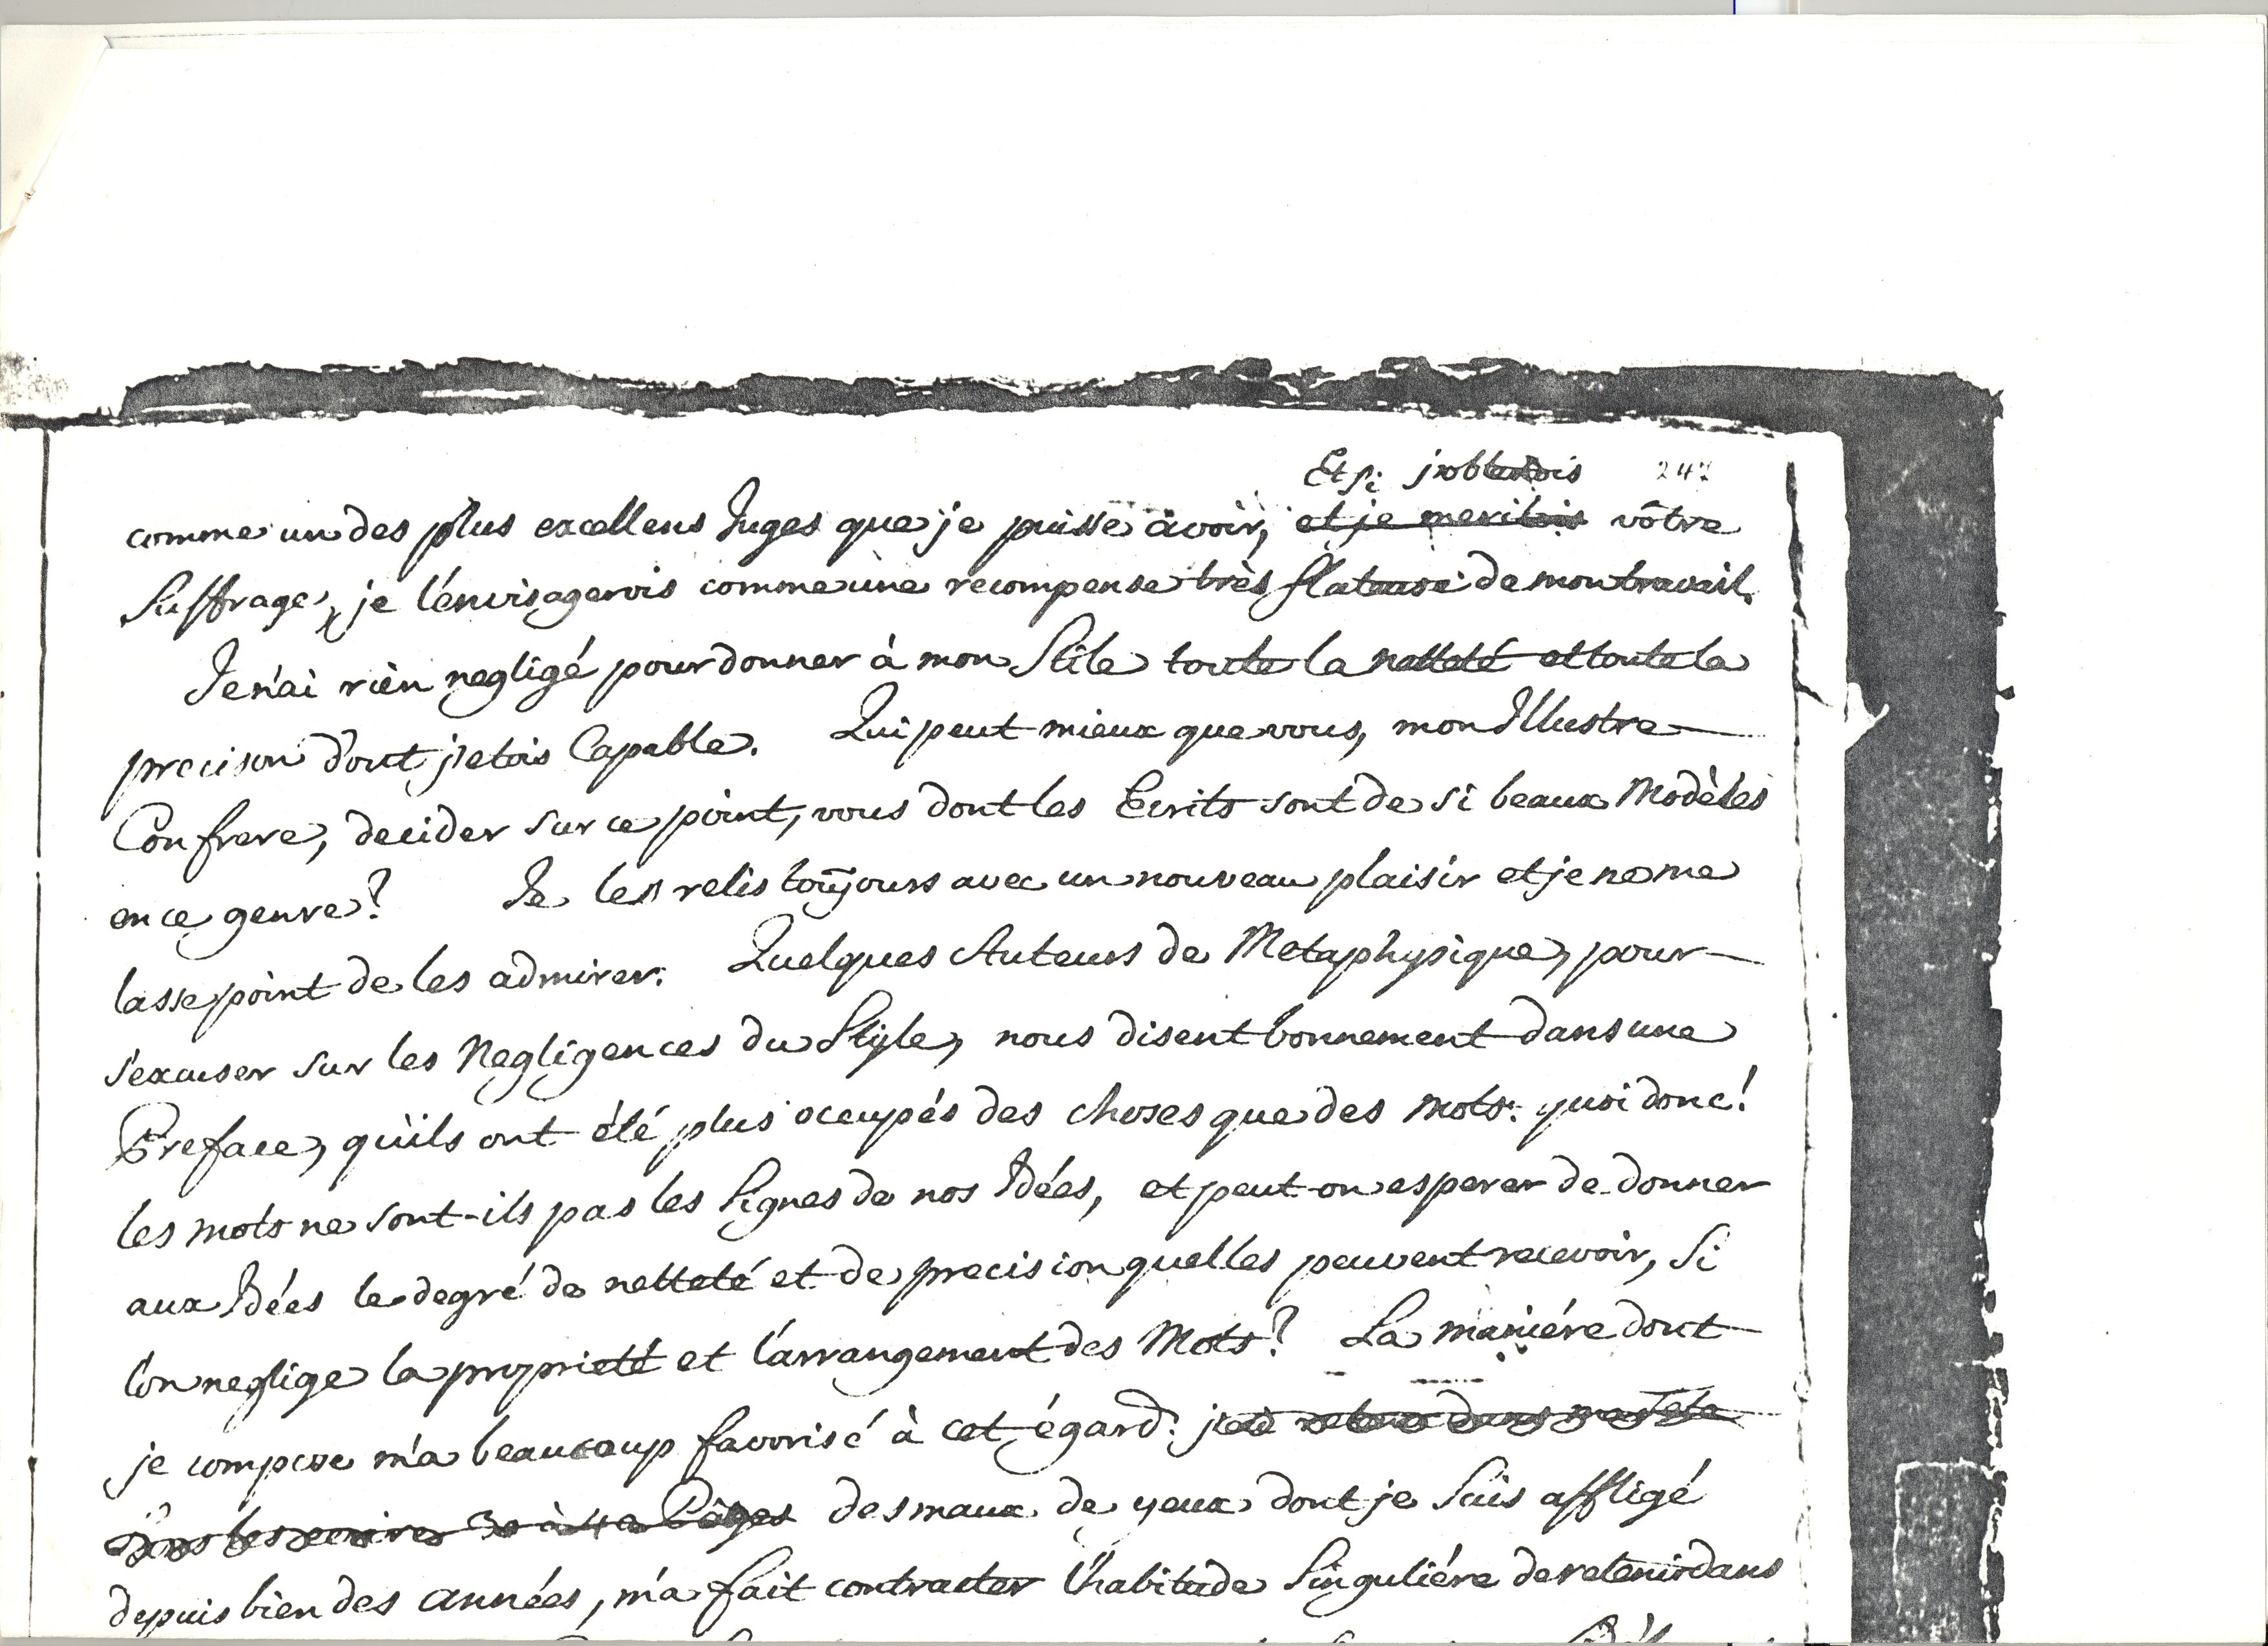 Et si j'obtenois 247
comme un des plus excellens Juges que je puisse avoir, et je meritois vôtre
Suffrage, je l'envisagerois comme une recompense très flateuse de mon travail.
Je n'ai rien negligé pour donner à mon Stile toute la netteté et toute la
precison dont j'etois Capable. Qui peut mieux que vous, mon Illustre
Confrere, decider sur ce point, vous dont les Ecrits sont de si beaux Modèles
en ce genre? Je les relis toûjours avec un nouveau plaisir et je ne me
lasse point de les admirer. Quelques Auteurs de Metaphysique, pour
s'excuser sur les Negligences du Style, nous disent bonnement dans une
Preface, qu'ils ont été plus occupés des choses que des Mots: quoi donc!
les Mots ne sont-ils pas les Signes de nos Idées, et peut-on esperer de donner
aux Idées le degré de netteté et de precision quelles peuvent recevoir, Si
l'on neglige la proprieté et l'arrangement des Mots? La maniére dont
je compose m'a beaucoup favorisé à cet égard: dans ma Tete
30 à 40 Pages des maux de yeux dont je Suis affligé
depuis bien des années, m'a fait contracter l'habitude Singuliére de retenir dans